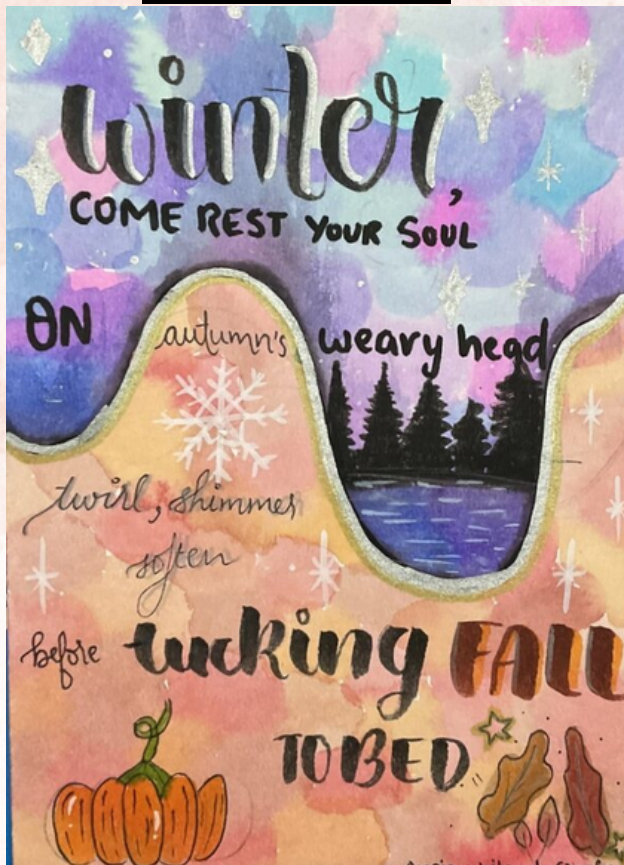 winter,
COME REST YOUR SOUL
ON autumn's weary head
twirl, shimmer
soften
before tucking FALL
TO BED